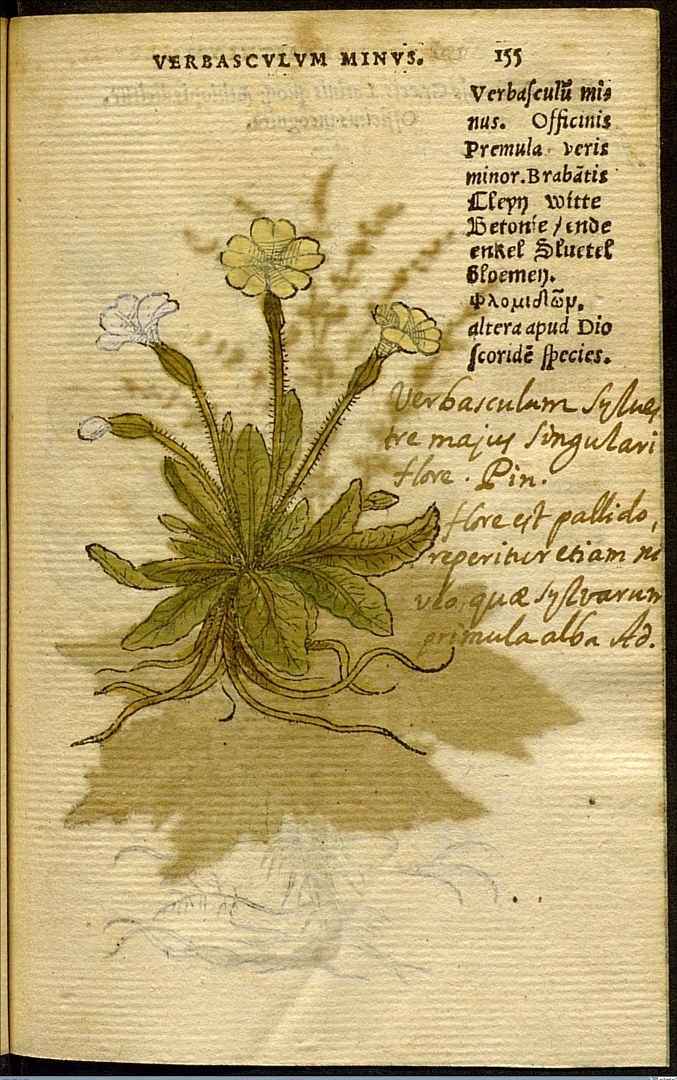 VERBASCVLVM MINVS.
155
Verbaſculū mi⸗
nus. Officinis
Premula veris
minor. Brabātis
Cleyn witte
Betonie / ende
enkel Sluetel
bloemen.
Φλομιςῶμ,
altera apud Dio
ſcoridē ſpecies.
Verbasculum sylves
tre majus singulari
flore. Pin.
flore est pallido,
reperitur etiam ni
veo, quæ sylvarum
primula alba Ad.